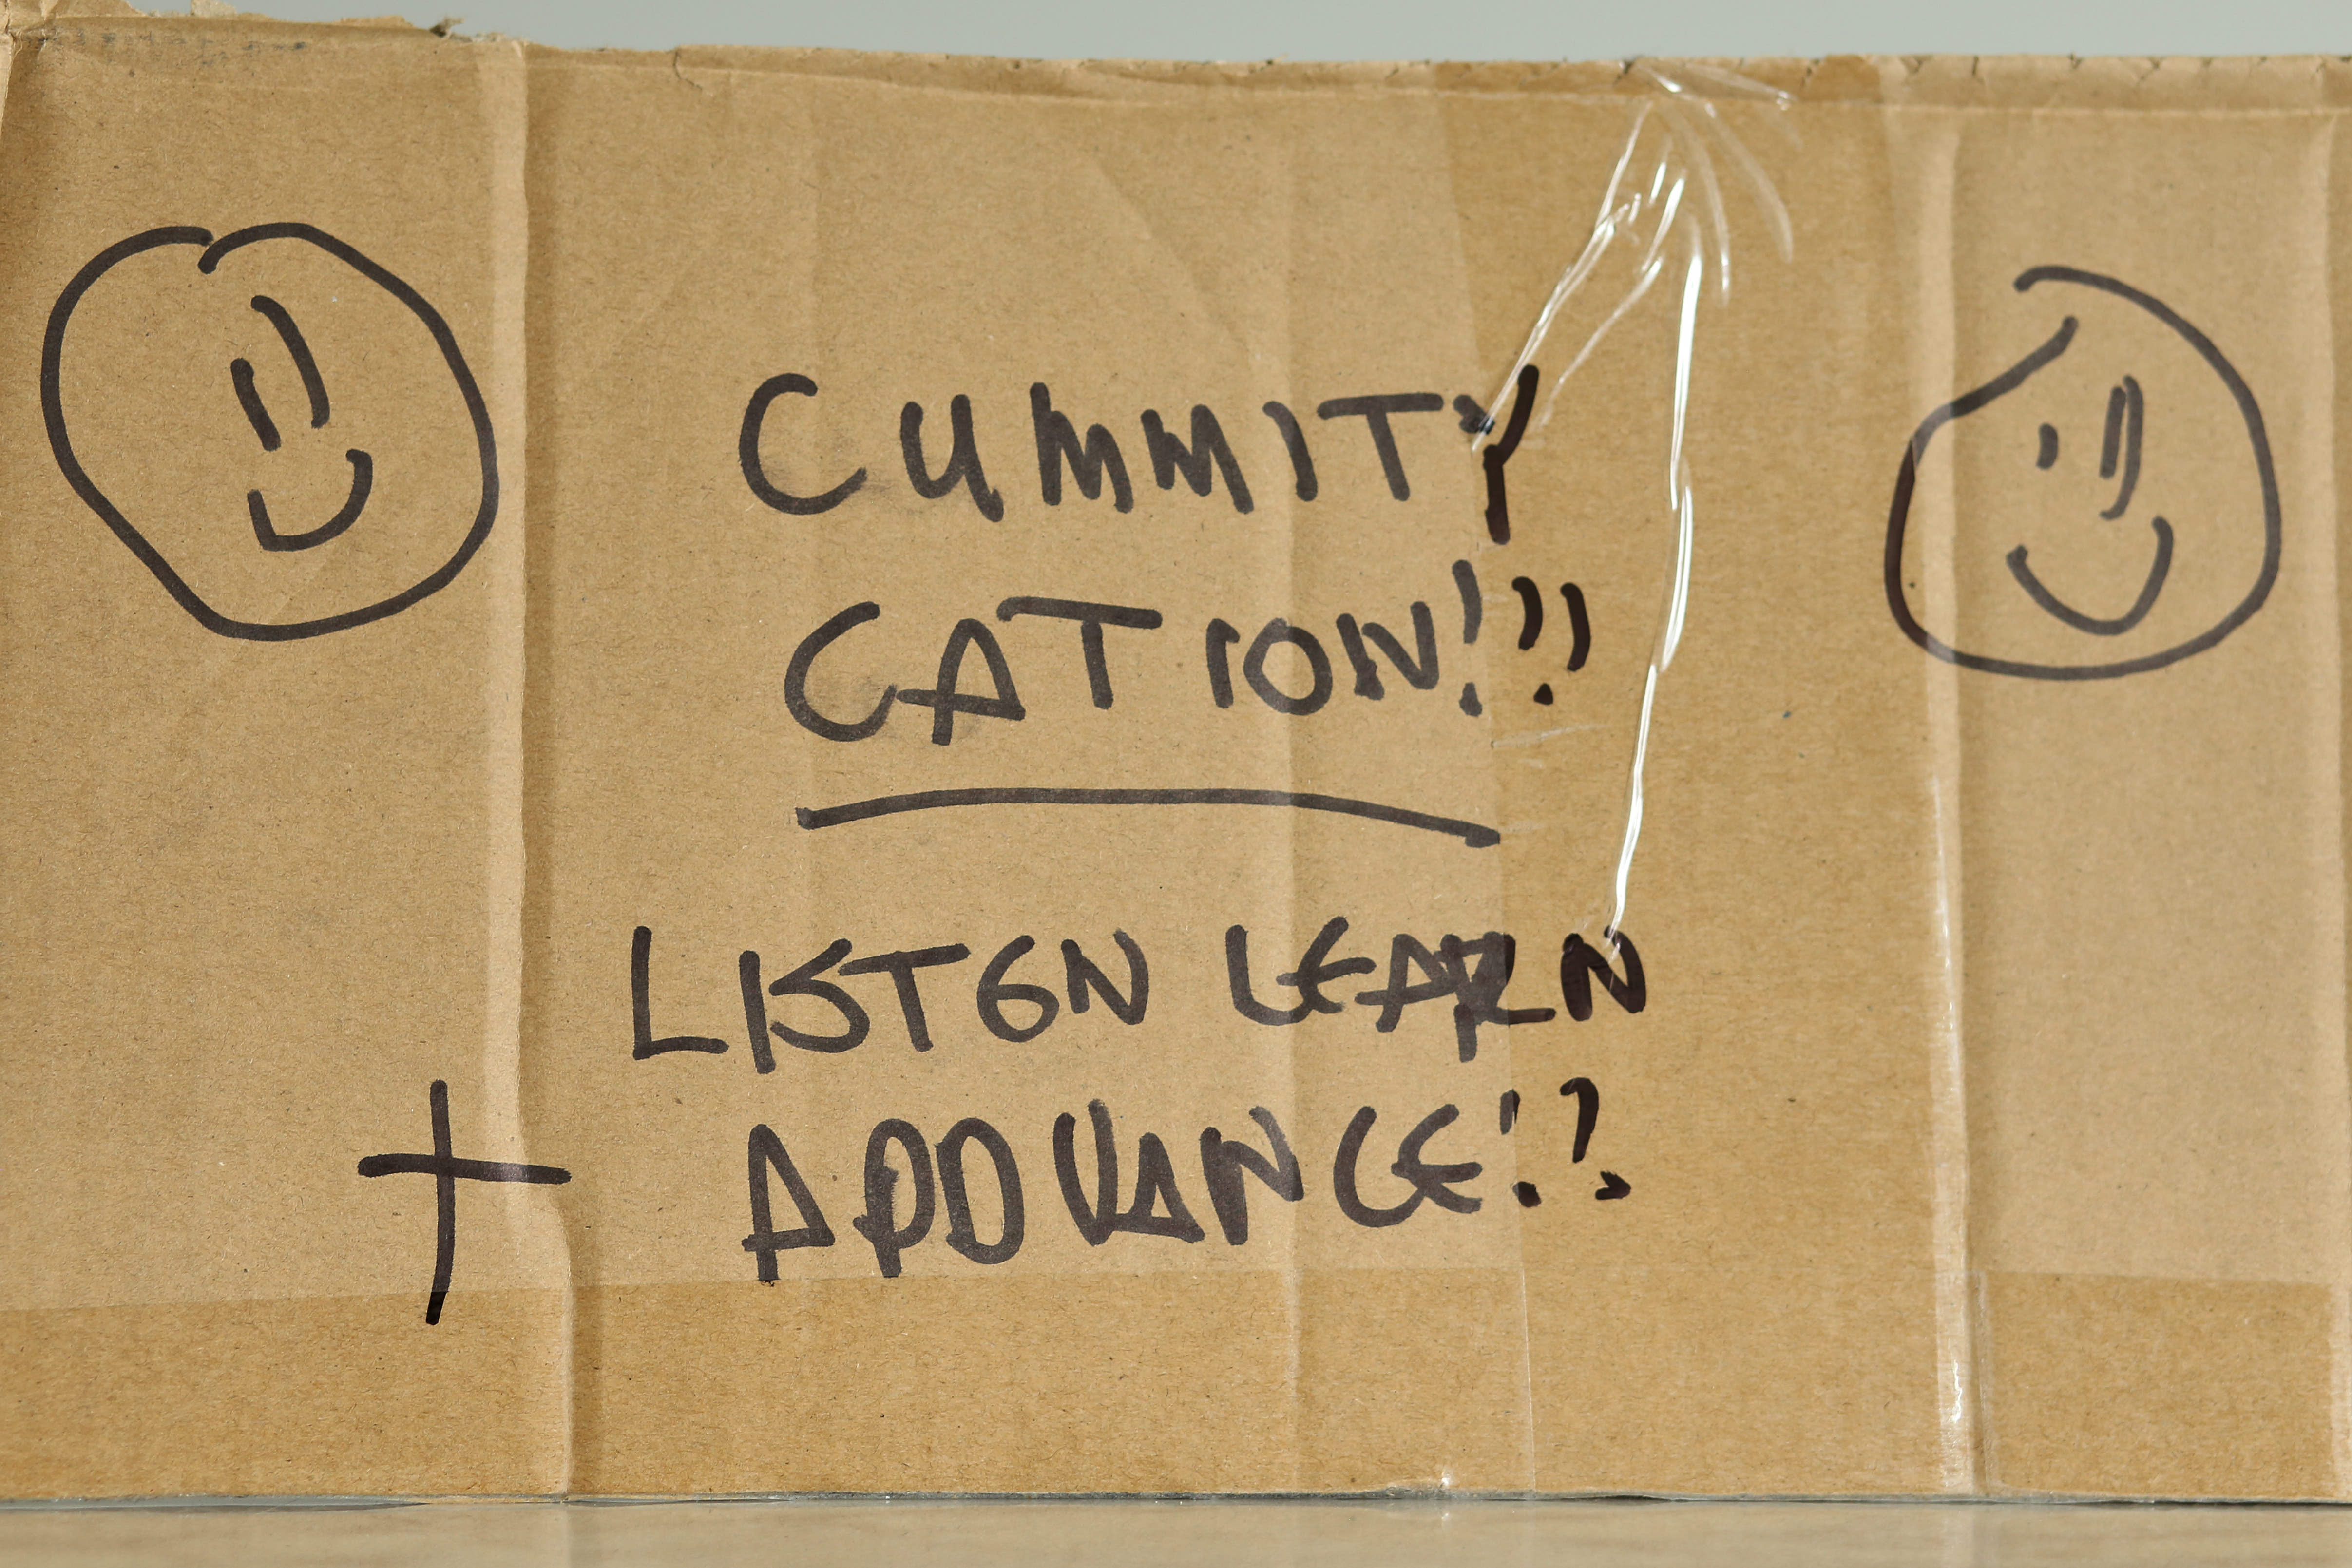 CUMMITY
CATION!!!
LISTEN LEARN
+ ADDVANCE!!